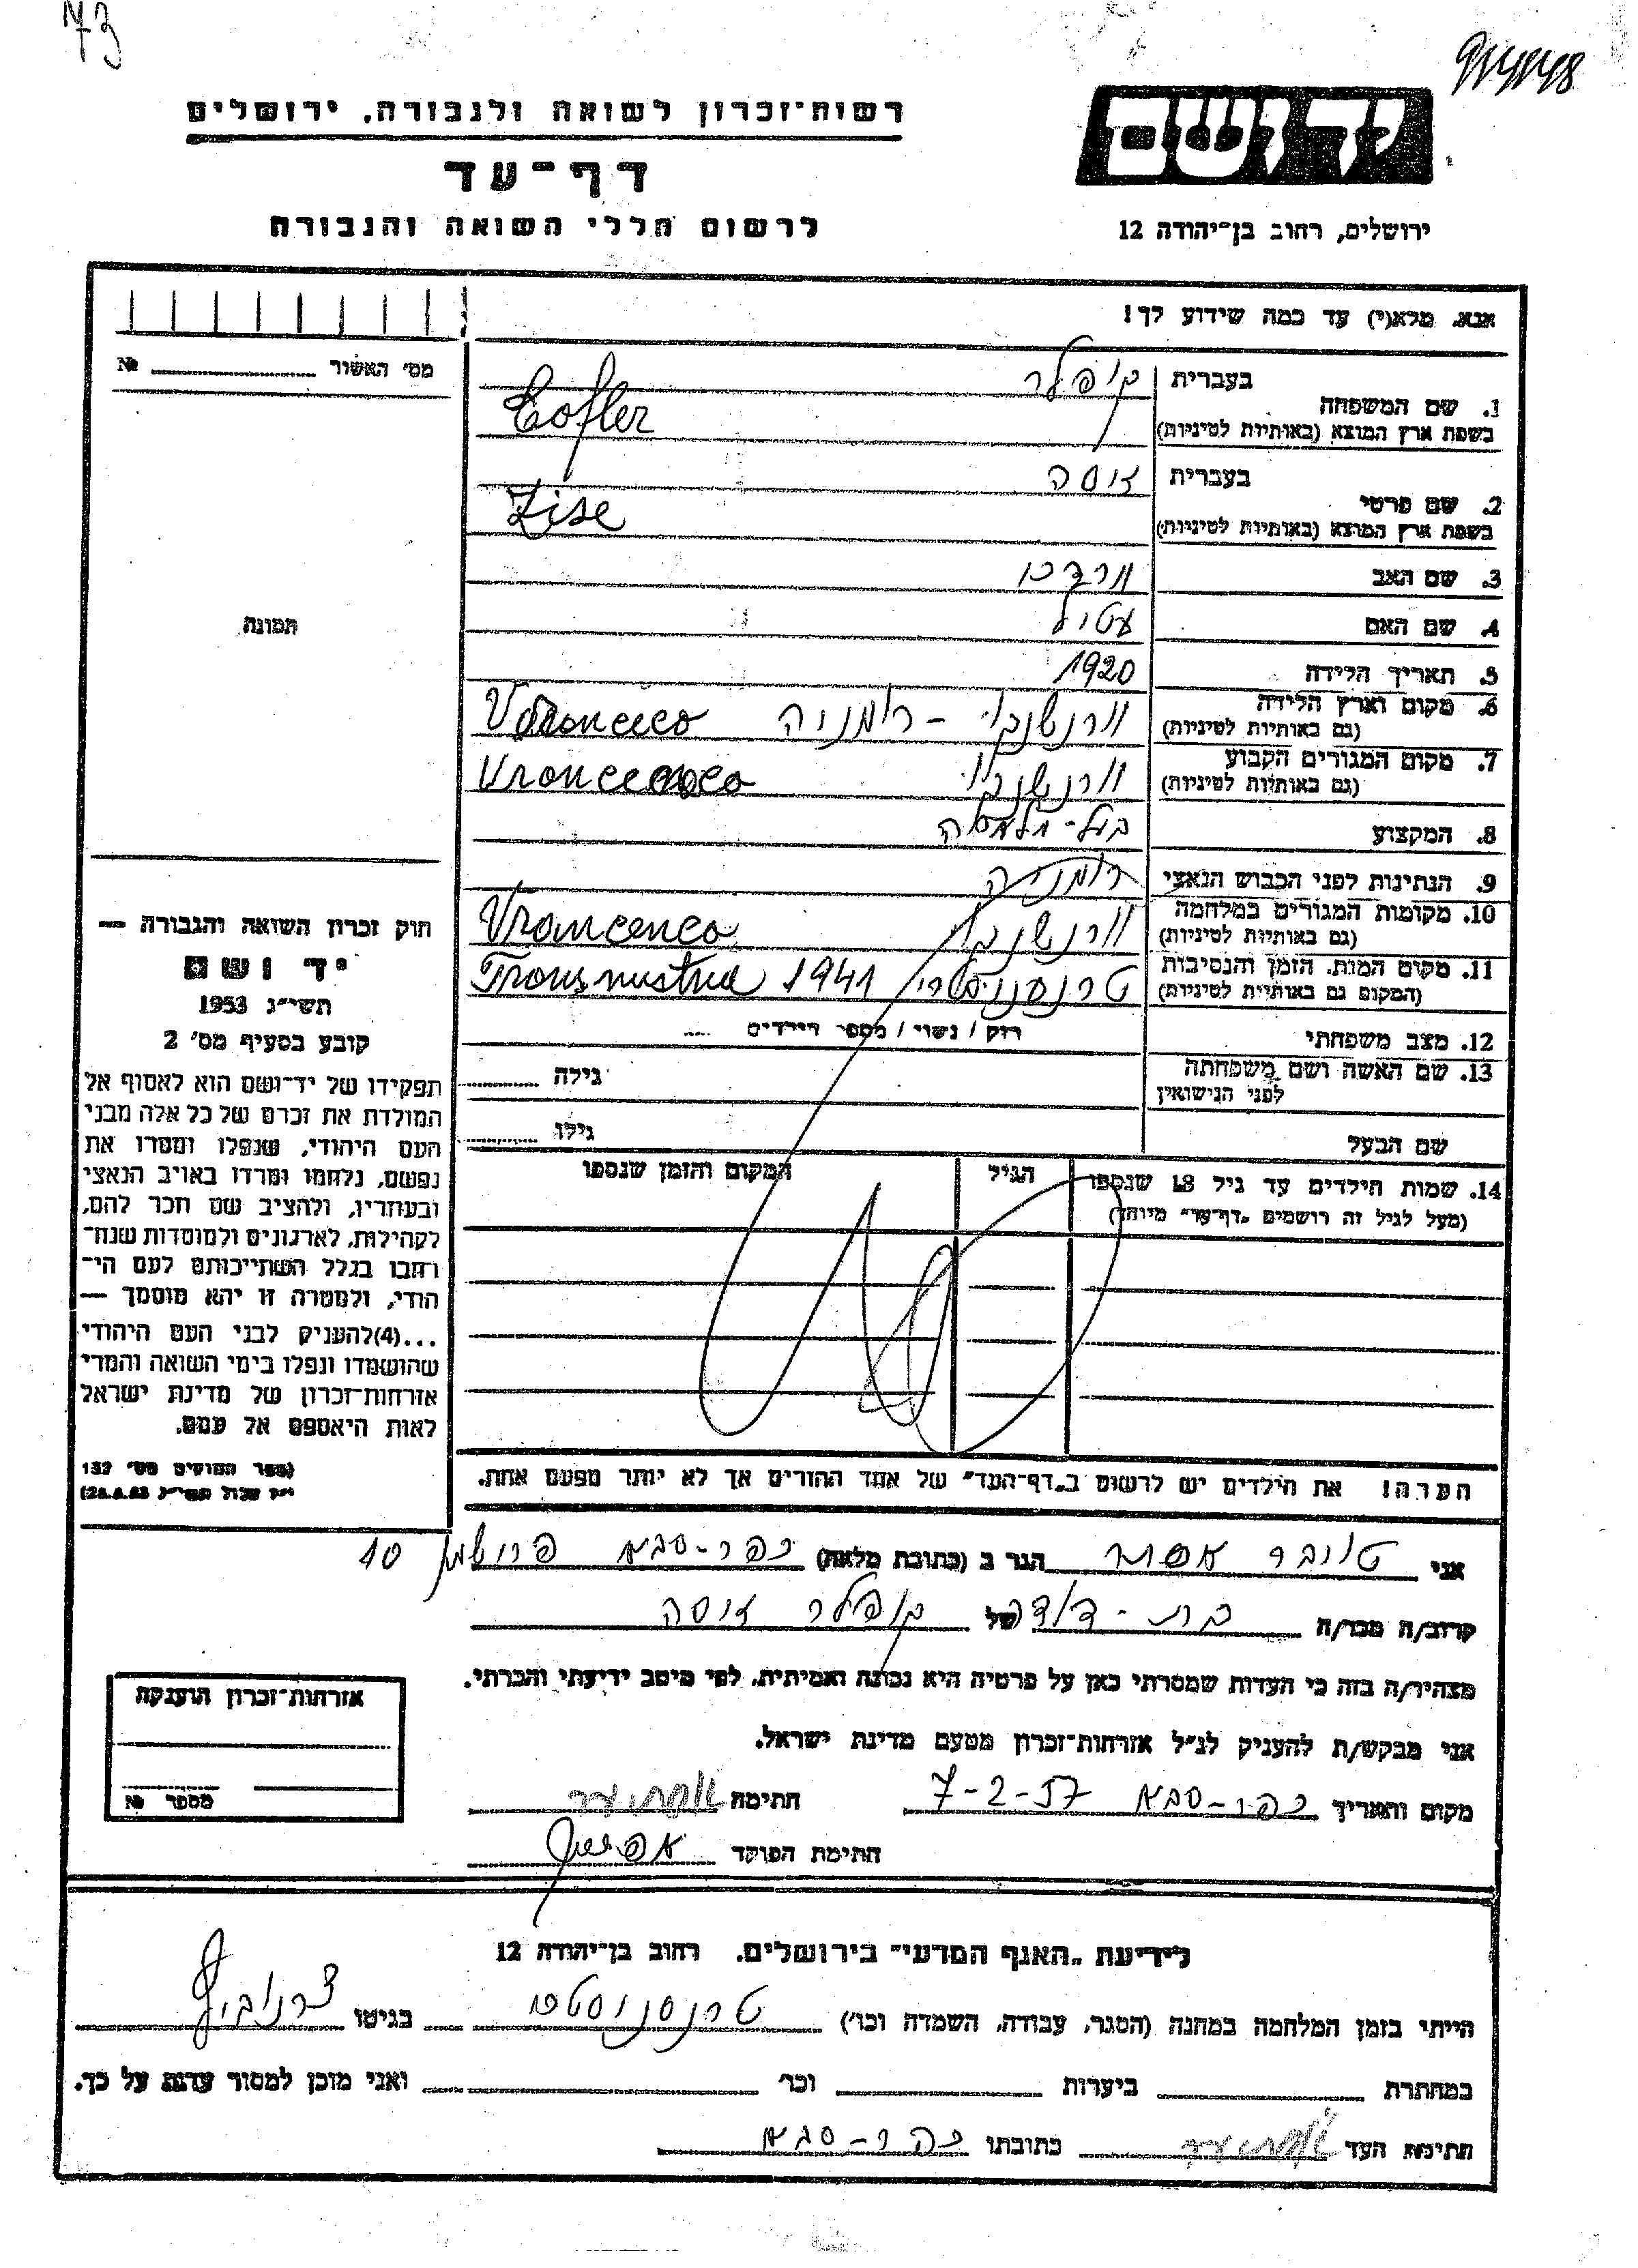 73
רשות־זכרון לשואה ולגבורה, ירושלים
יד ושם
דף־עד
לרשום חללי השואה והגבורה
ירושלים, רחוב בן־יהודה 12
אנא, מלא(י) עד כמה שידוע לך!
מס' האשור №
1. שם המשפחה
בעברית קופלר
בשפת ארץ המוצא (באותיות לטיניות) Cofler
2. שם פרטי
בעברית זיסה
בשפת ארץ המוצא (באותיות לטיניות) Zise
3. שם האב
4. שם האם עטיל
5. תאריך הלידה 1920
6. מקום וארץ הלידה
(גם באותיות לטיניות) רומניה
7. מקום המגורים הקבוע
(גם באותיות לטיניות)
8. המקצוע בעל-מלאכה
9. הנתינות לפני הכבוש הנאצי רומניה
10. מקומות המגורים במלחמה
(גם באותיות לטיניות)
11. מקום המות, הזמן והנסיבות
(המקום גם באותיות לטיניות) 1941
12. מצב משפחתי רוק / נשוי / מספר הילדים
13. שם האשה ושם משפחתה
לפני הנישואין גילה
שם הבעל גילו
14. שמות הילדים עד גיל 18 שנספו
(מעל לגיל זה רושמים „דף־עד" מיוחד)
הגיל
המקום והזמן שנספו
הערה! את הילדים יש לרשום ב„דף־העד" של אחד ההורים אך לא יותר מפעם אחת.
תמונה
חוק זכרון השואה והגבורה —
יד ושם
תשי״ג 1953
קובע בסעיף מס' 2
תפקידו של יד־ושם הוא לאסוף אל
המולדת את זכרם של כל אלה מבני
העם היהודי, שנפלו ומסרו את
נפשם, נלחמו ומרדו באויב הנאצי
ובעוזריו, ולהציב שם וזכר להם,
לקהילות, לארגונים ולמוסדות שנח־
רבו בגלל השתייכותם לעם הי־
הודי, ולמטרה זו יהא מוסמך —
...(4)להעניק לבני העם היהודי
שהושמדו ונפלו בימי השואה והמרי
אזרחות־זכרון של מדינת ישראל
לאות היאספם אל עמם.
(ספר החוקים מס' 132
אני טויבר אסתר הגר ב (כתובת מלאה) כפר-סבא 40
קרוב/ה מכר/ה בת-דודה של קופלר זיסה
מצהיר/ה בזה כי העדות שמסרתי כאן על פרטיה היא נכונה ואמיתית, לפי מיטב ידיעתי והכרתי.
אני מבקש/ת להעניק לנ״ל אזרחות־זכרון מטעם מדינת ישראל.
מקום ותאריך כפר-סבא 7-2-57 חתימה
חתימת הפוקד
אזרחות־זכרון הוענקה
מספר №
לידיעת „האגף המדעי" בירושלים. רחוב בן־יהודה 12
הייתי בזמן המלחמה במחנה (הסגר, עבודה, השמדה וכו') בגיטו
במחתרת ביערות וכו' ואני מוכן למסור עדות על כך.
חתימת העד כתובתו כפר-סבא